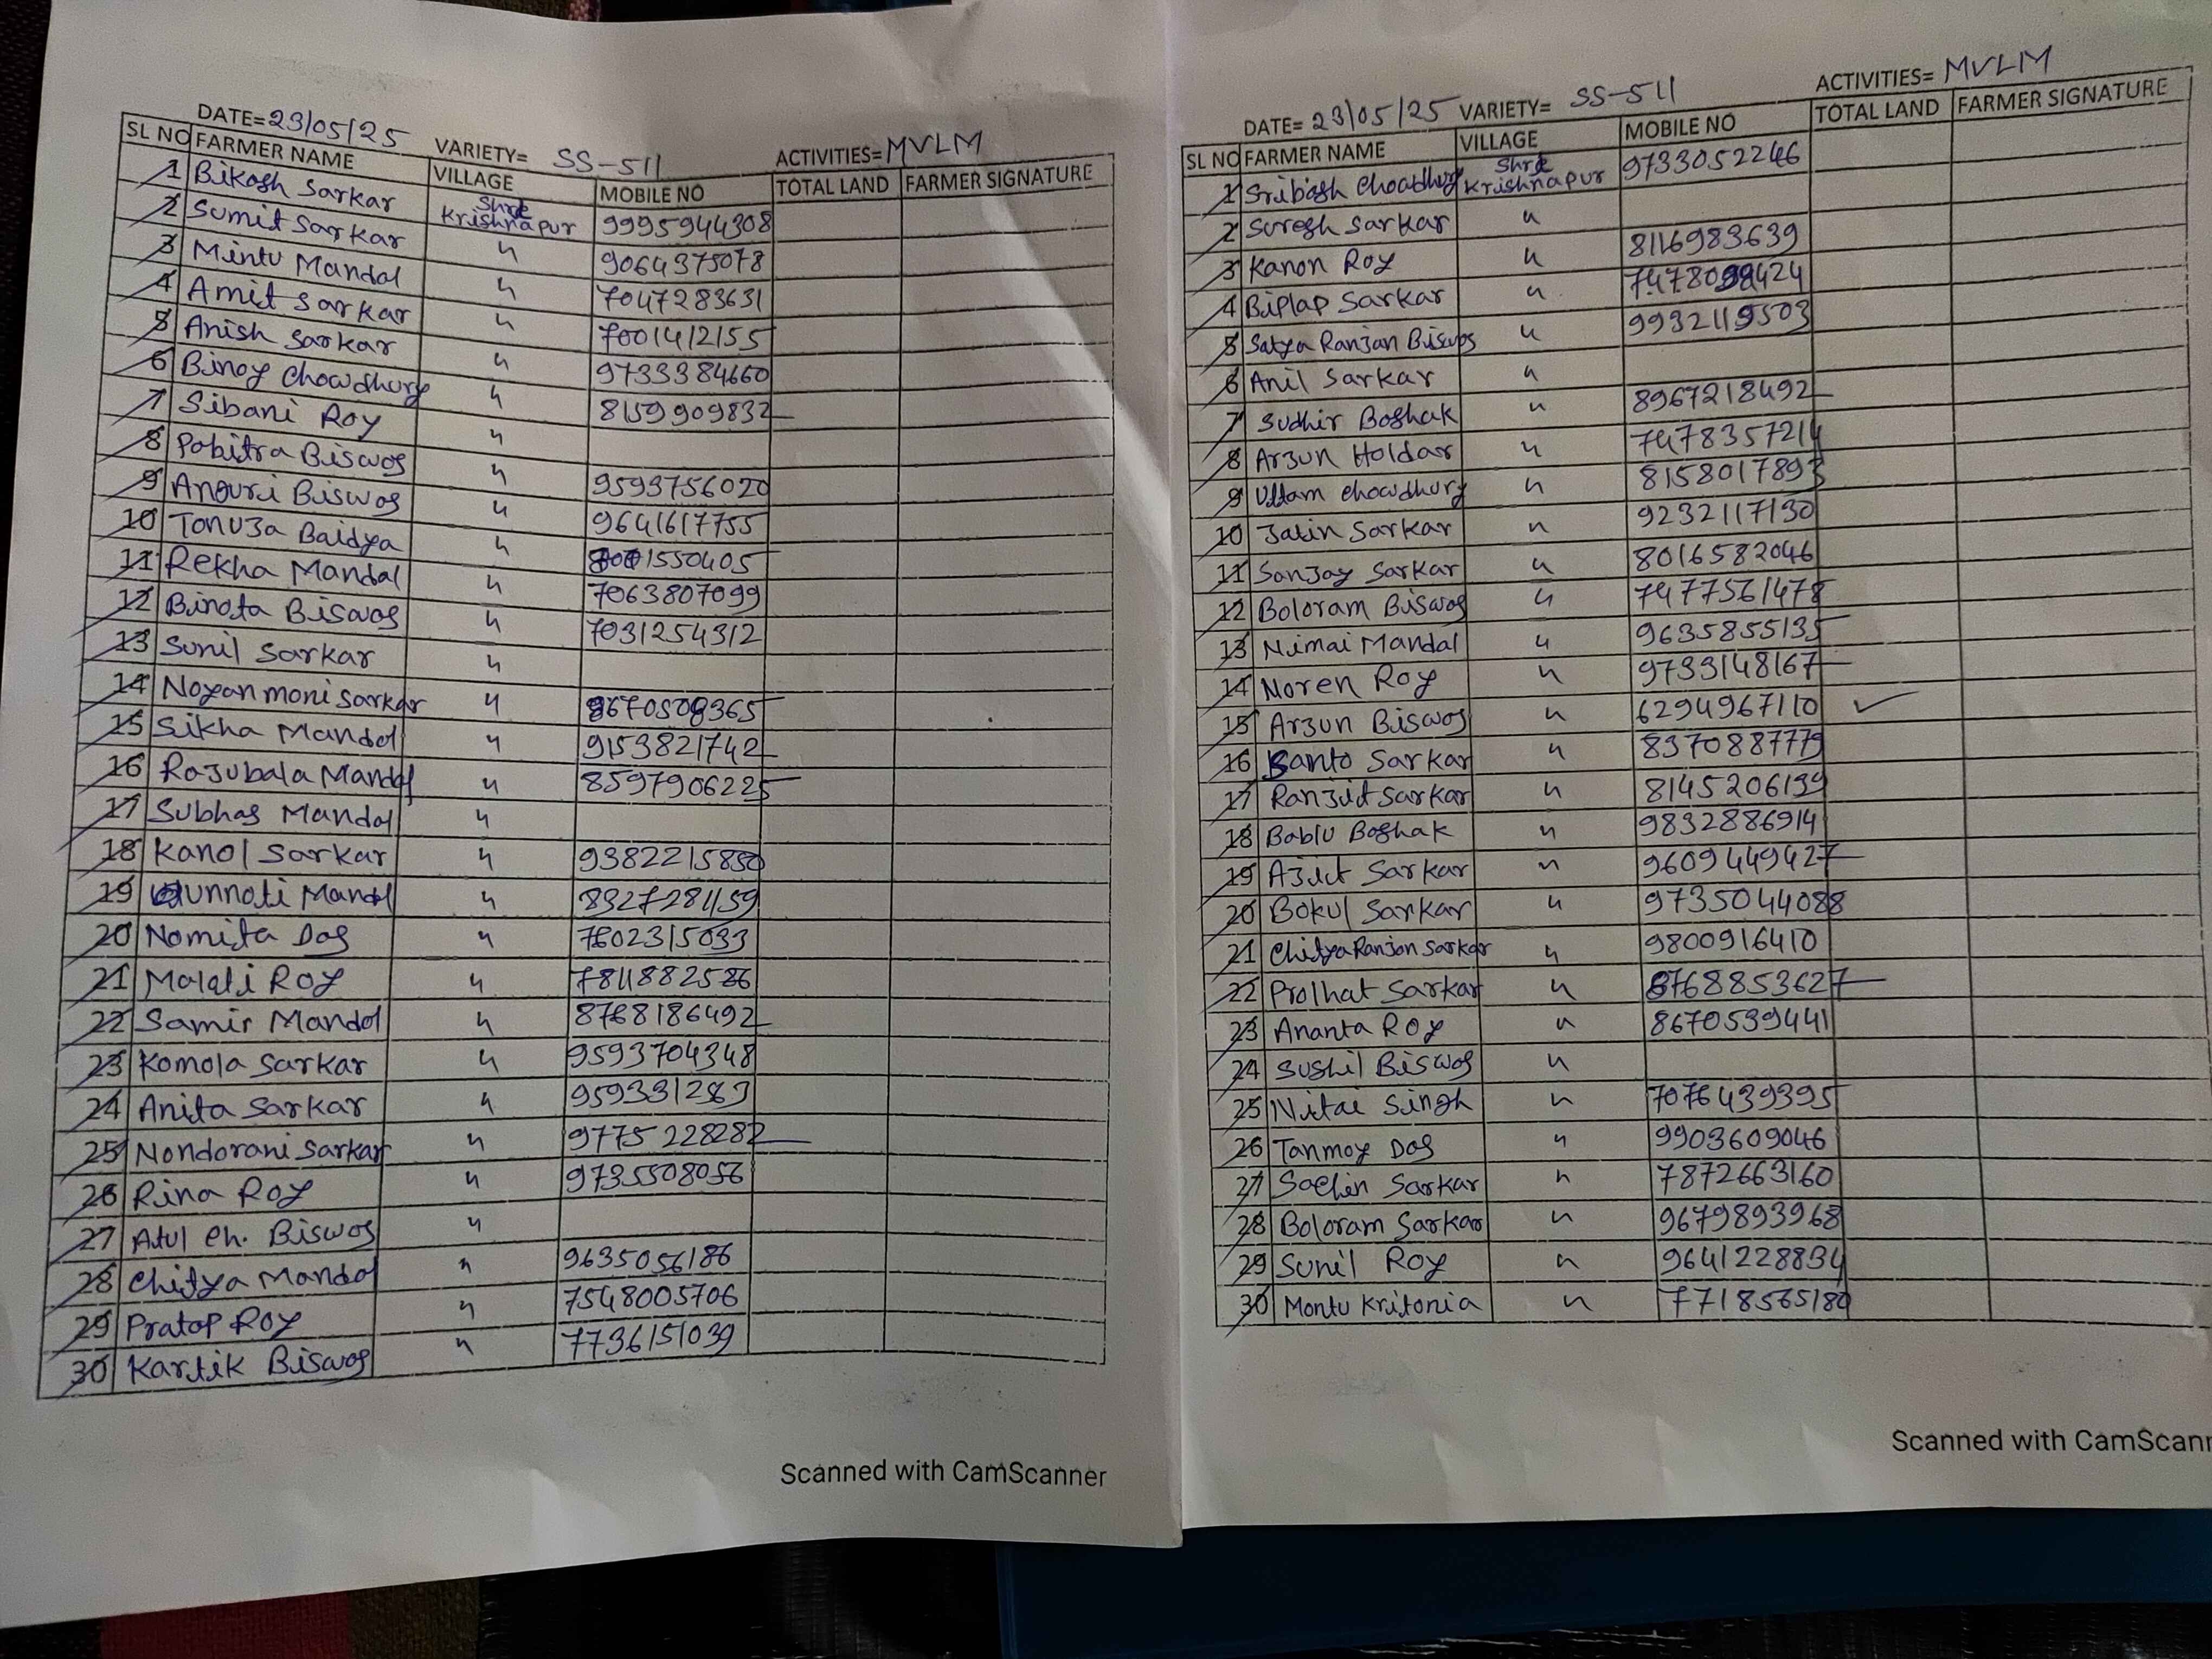 DATE=23/05/25 VARIETY= SS-511 ACTIVITIES=MVLM
SL NO FARMER NAME VILLAGE MOBILE NO TOTAL LAND FARMER SIGNATURE
1 Bikash Sarkar Shree Krishnapur 9995944308
2 Sumit Sarkar " 9064375078
3 Mintu Mandal " 7047283631
4 Amit Sarkar " 7001412155
5 Anish Sarkar " 9733384660
6 Binoy Chowdhury " 8159909832
7 Sibani Roy "
8 Pobitra Biswas " 9593756020
9 Anguri Biswas " 9641617755
10 Tonuja Baidya " 8001550405
11 Rekha Mandal " 7063807099
12 Binota Biswas " 7031254312
13 Sunil Sarkar "
14 Noyanmoni Sarkar " 8670508365
15 Sikha Mandal " 9153821742
16 Rajubala Mandal " 8597906225
17 Subhas Mandal "
18 Kanol Sarkar " 9382215850
19 Unnoti Mandal " 8327281159
20 Nomita Das " 7602315033
21 Malati Roy " 7811882586
22 Samir Mandol " 8768186492
23 Komola Sarkar " 9593704348
24 Anita Sarkar " 959331283
25 Nondorani Sarkar " 9775228282
26 Rina Roy " 9735508056
27 Atul Ch. Biswas "
28 Chitya Mandal " 9635056186
29 Pratap Roy " 7548005706
30 Kartik Biswas " 7736151039
Scanned with CamScanner
DATE= 23/05/25 VARIETY= SS-511 ACTIVITIES= MVLM
SL NO FARMER NAME VILLAGE MOBILE NO TOTAL LAND FARMER SIGNATURE
1 Sribash Choadhury Shree Krishnapur 9733052246
2 Suresh Sarkar "
3 Kanon Roy " 8116983639
4 Biplap Sarkar " 7478099424
5 Satya Ranjan Biswas " 9932119503
6 Anil Sarkar "
7 Sudhir Boshak " 8967218492
8 Arjun Holdar " 7478357214
9 Uttam Chowdhury " 8158017893
10 Jatin Sarkar " 9232117130
11 Sanjay Sarkar " 8016582046
12 Boloram Biswas " 7477561478
13 Nimai Mandal " 9635855135
14 Noren Roy " 9733148167
15 Arjun Biswas " 6294967110 ✓
16 Santo Sarkar " 8370887779
17 Ranjit Sarkar " 8145206139
18 Bablu Boshak " 9832886914
19 Ajit Sarkar " 9609449427
20 Bokul Sarkar " 9735044088
21 Chitya Ranjan Sarkar " 9800916410
22 Prolhat Sarkar " 8768853627
23 Ananta Roy " 8670539441
24 Sushil Biswas "
25 Nitai Singh " 7076439395
26 Tanmoy Das " 9903609046
27 Sachin Sarkar " 7872663160
28 Boloram Sarkar " 9679893968
29 Sunil Roy " 9641228834
30 Montu Kritonia " 7718565180
Scanned with CamScann